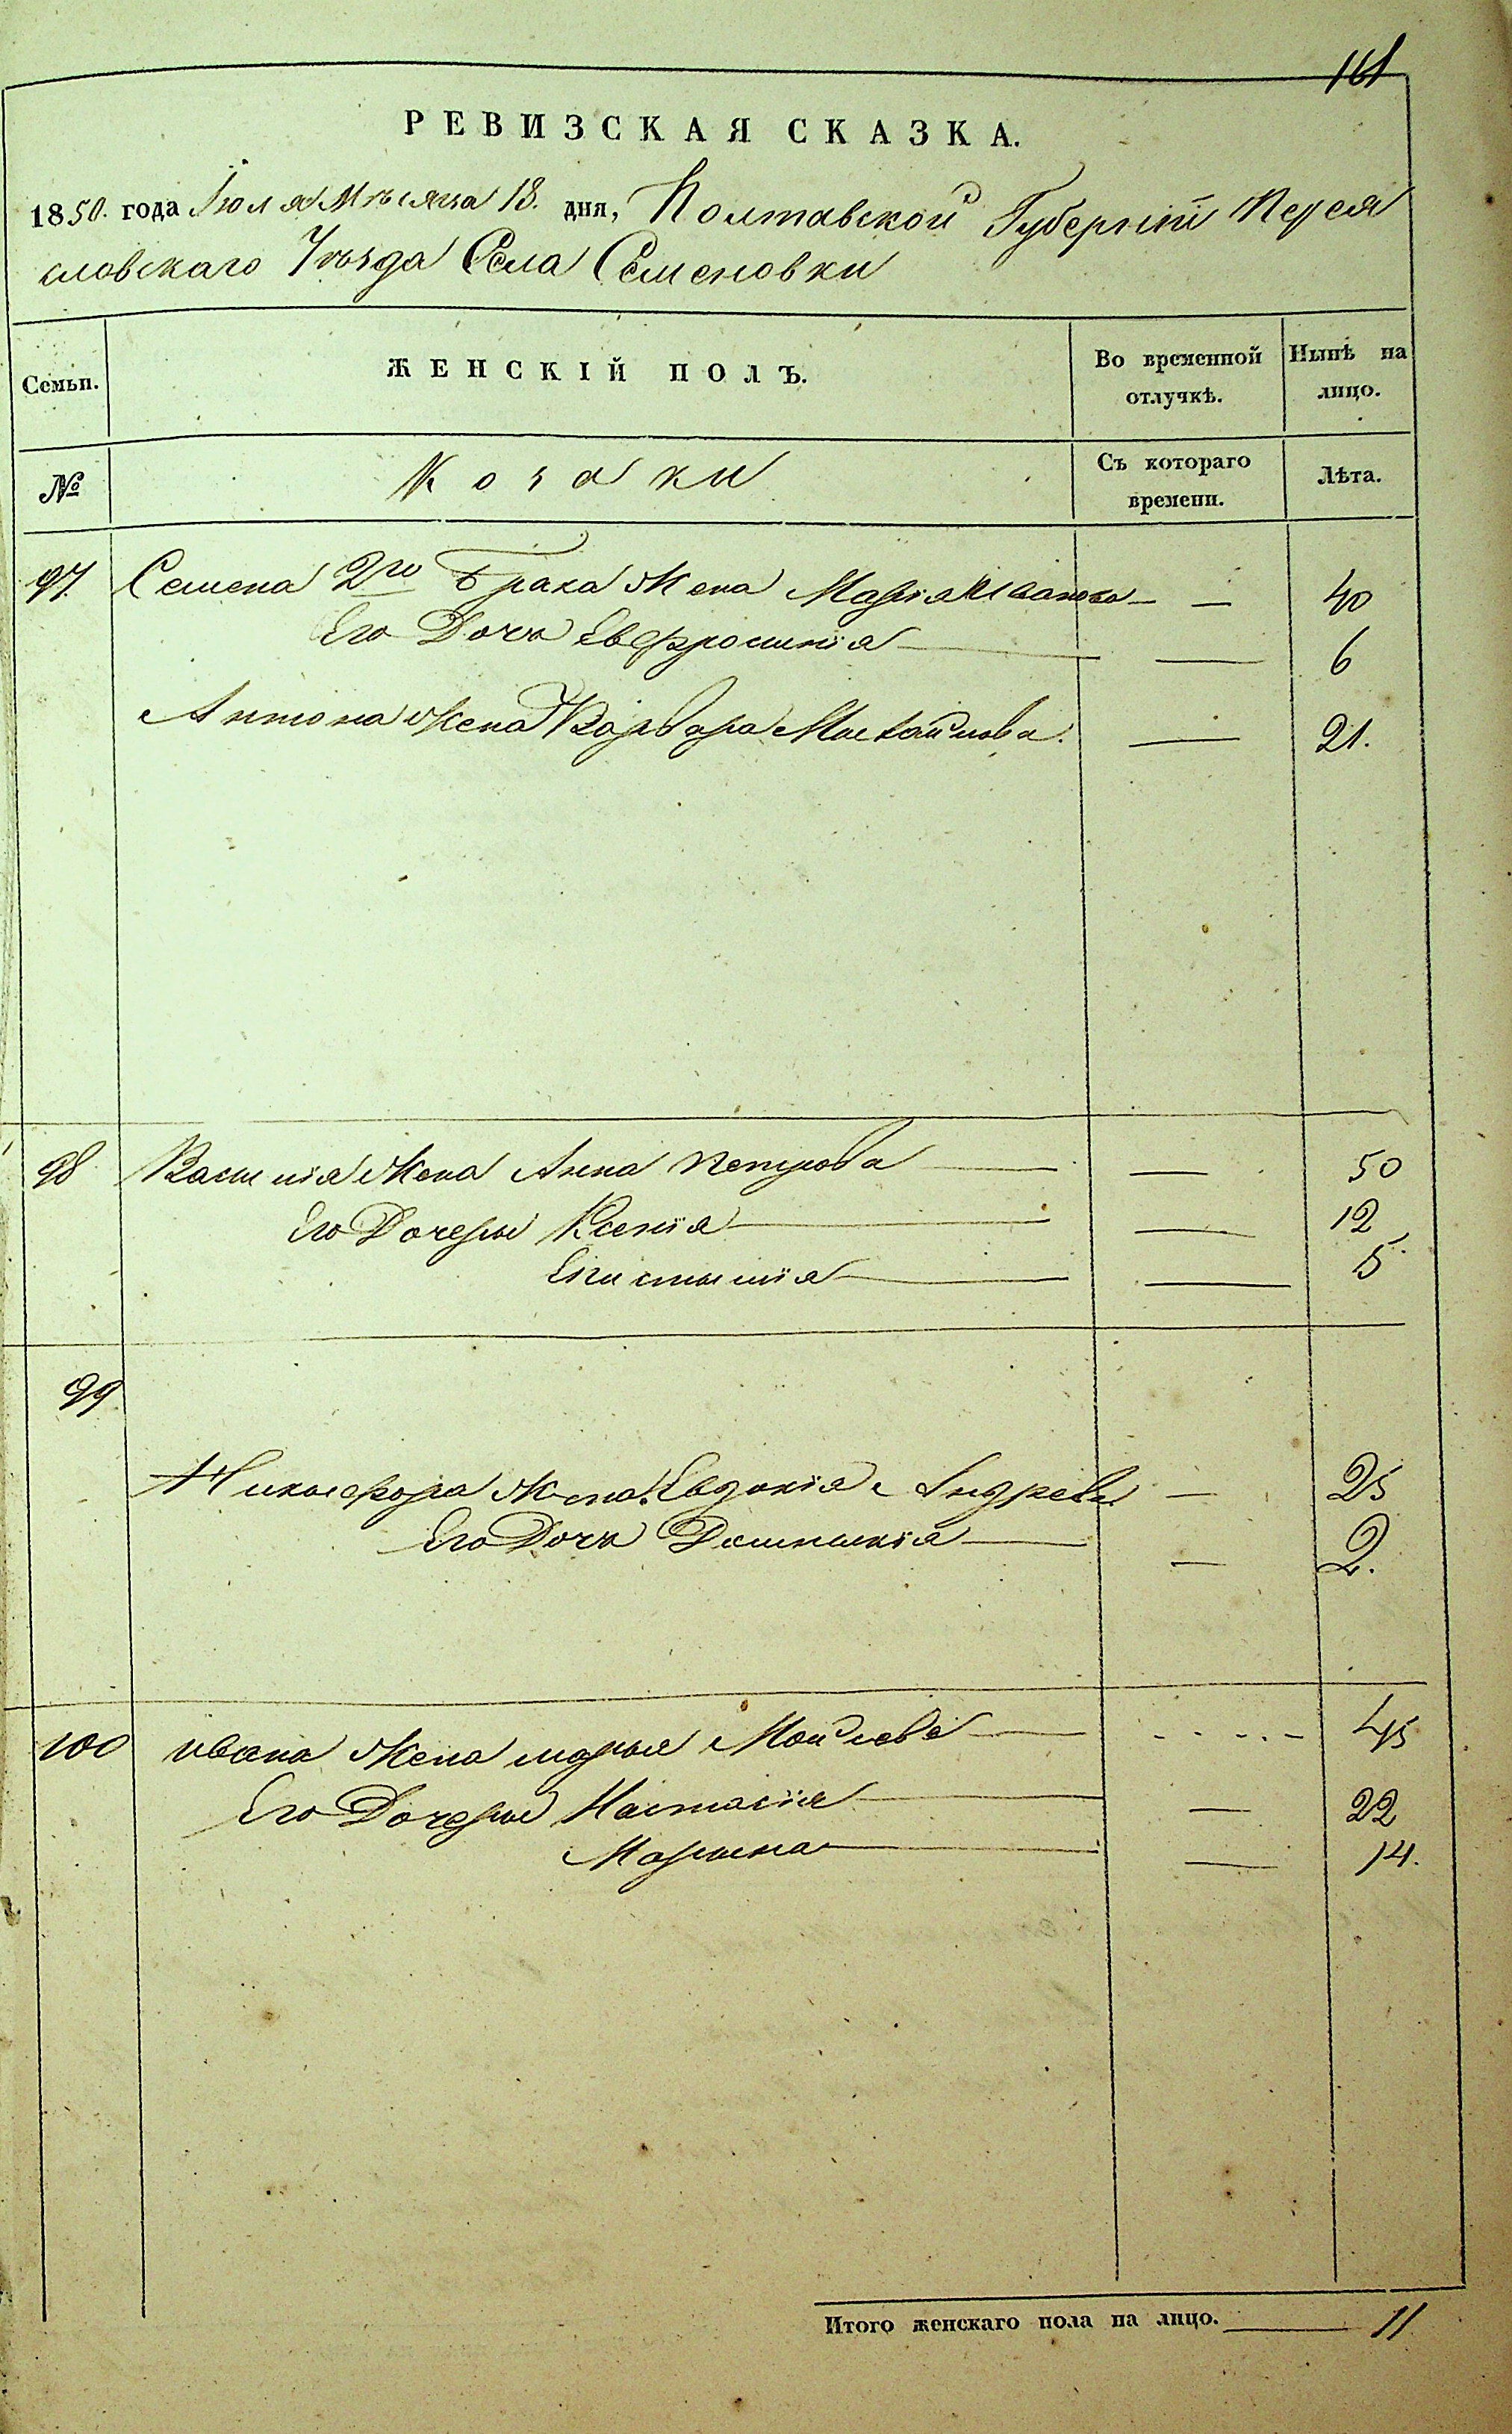 161
РЕВИЗСКАЯ СКАЗКА.
1850. года Іюля Мѣсяца 18. дня, Полтавской Губерніи Перея
словскаго Уѣзда Села Семеновки
Семьи. ЖЕНСКІЙ ПОЛЪ. Во временной отлучкѣ. Нынѣ на лицо.
№ Козаки Съ котораго времени. Лѣта.
97. Семена 2го Брака Жена Марія Иванова — — 40
Его Дочь Евфросинія — — 6
Антона Жена Варвара Михайлова. — 21.
98 Василія Жена Анна Петрова — — 50
Его Дочери Ксенія — — 12
Епистимія — — 5
99
Никифора Жена Евдокія Андреева — 25
Его Дочь Домникія — — 2.
100 Ивана Жена Марья Мойсева — - - - - 45
Его Дочери Настасія — — 22
Марина — — 14.
Итого женскаго пола на лицо. — 11